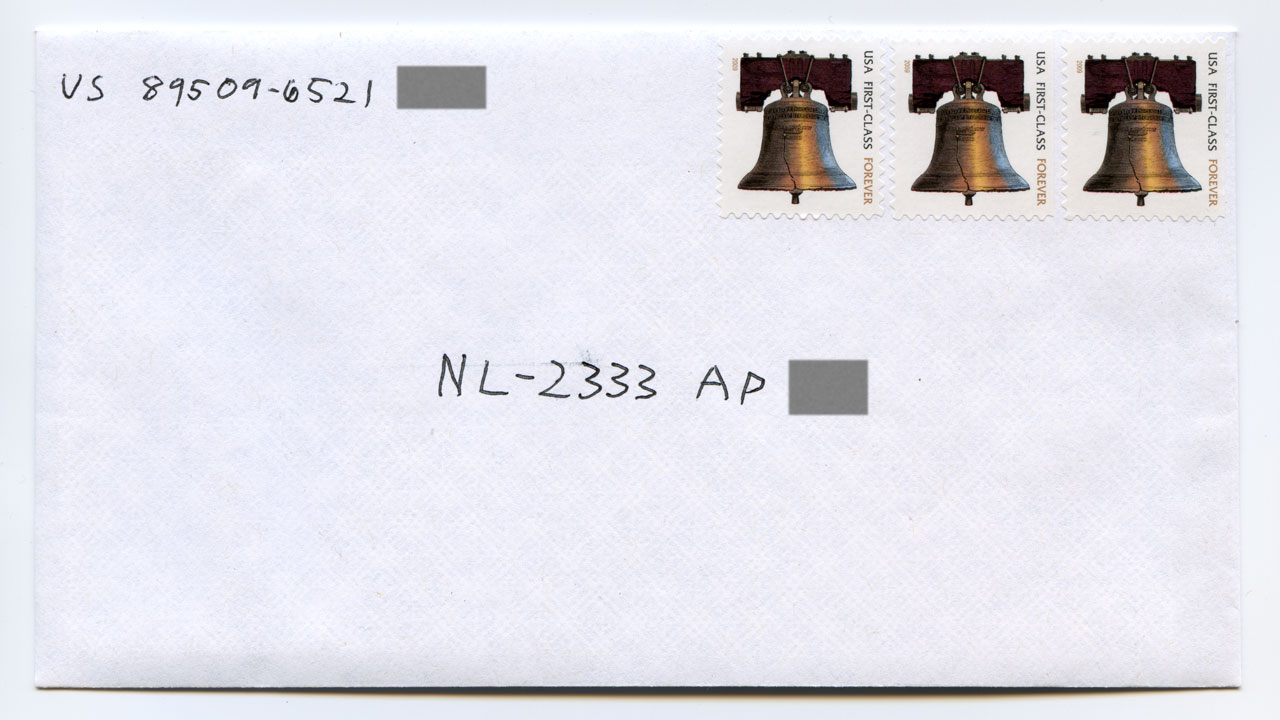 US 89509-6521
USA FIRST-CLASS FOREVER
2009
USA FIRST-CLASS FOREVER
2009
USA FIRST-CLASS FOREVER
2009
NL-2333 AP